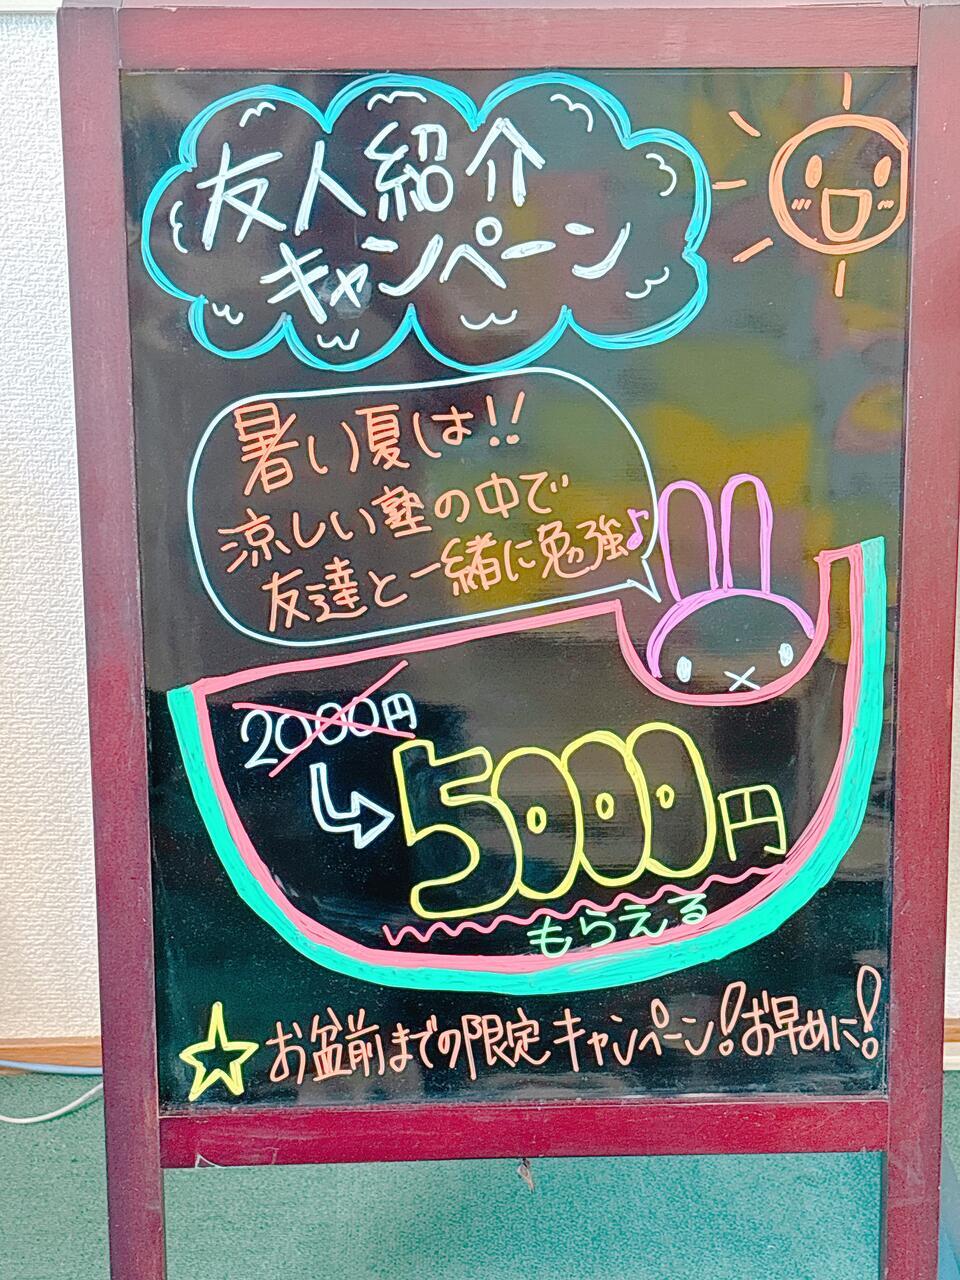 友人紹介
キャンペーン
暑い夏は!!
涼しい塾の中で
友達と一緒に勉強♪
2000円
5000円
もらえる
☆お盆前までの限定キャンペーン!お早めに!